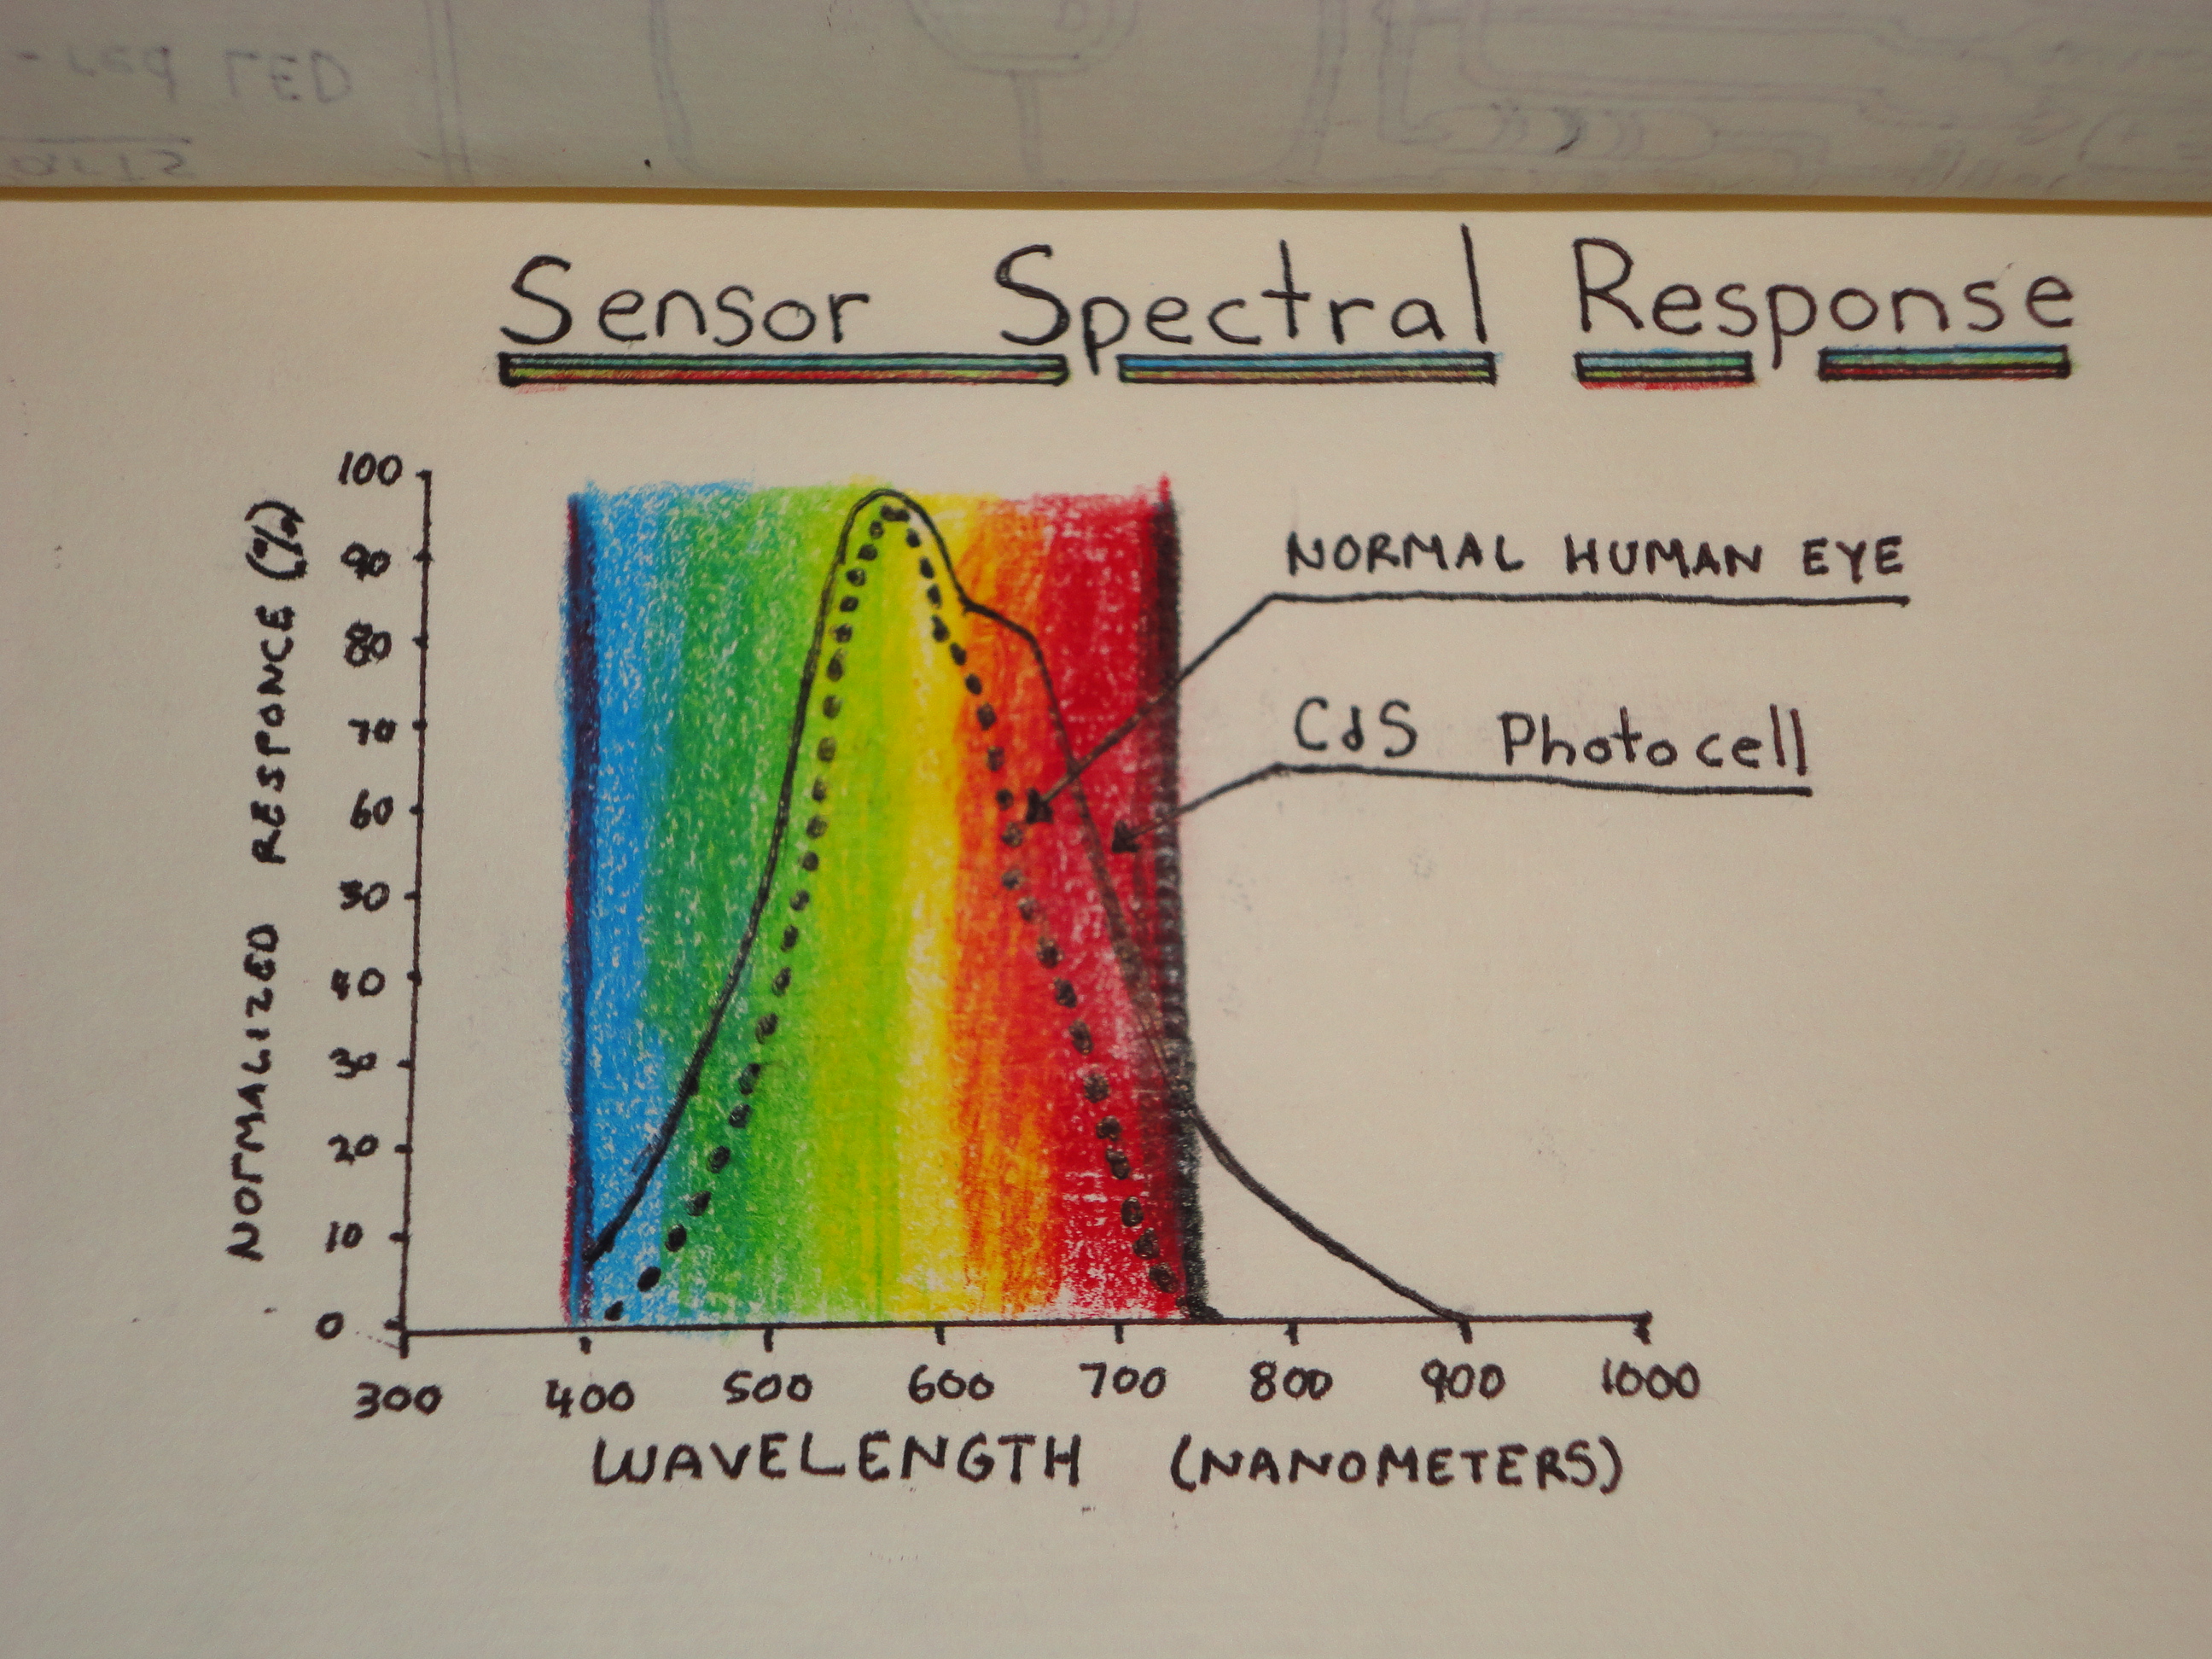 - red LED
Sensor Spectral Response
NORMALIZED RESPONCE (%)
100
90
80
70
60
50
40
30
20
10
0
NORMAL HUMAN EYE
CdS Photocell
300 400 500 600 700 800 900 1000
WAVELENGTH (NANOMETERS)